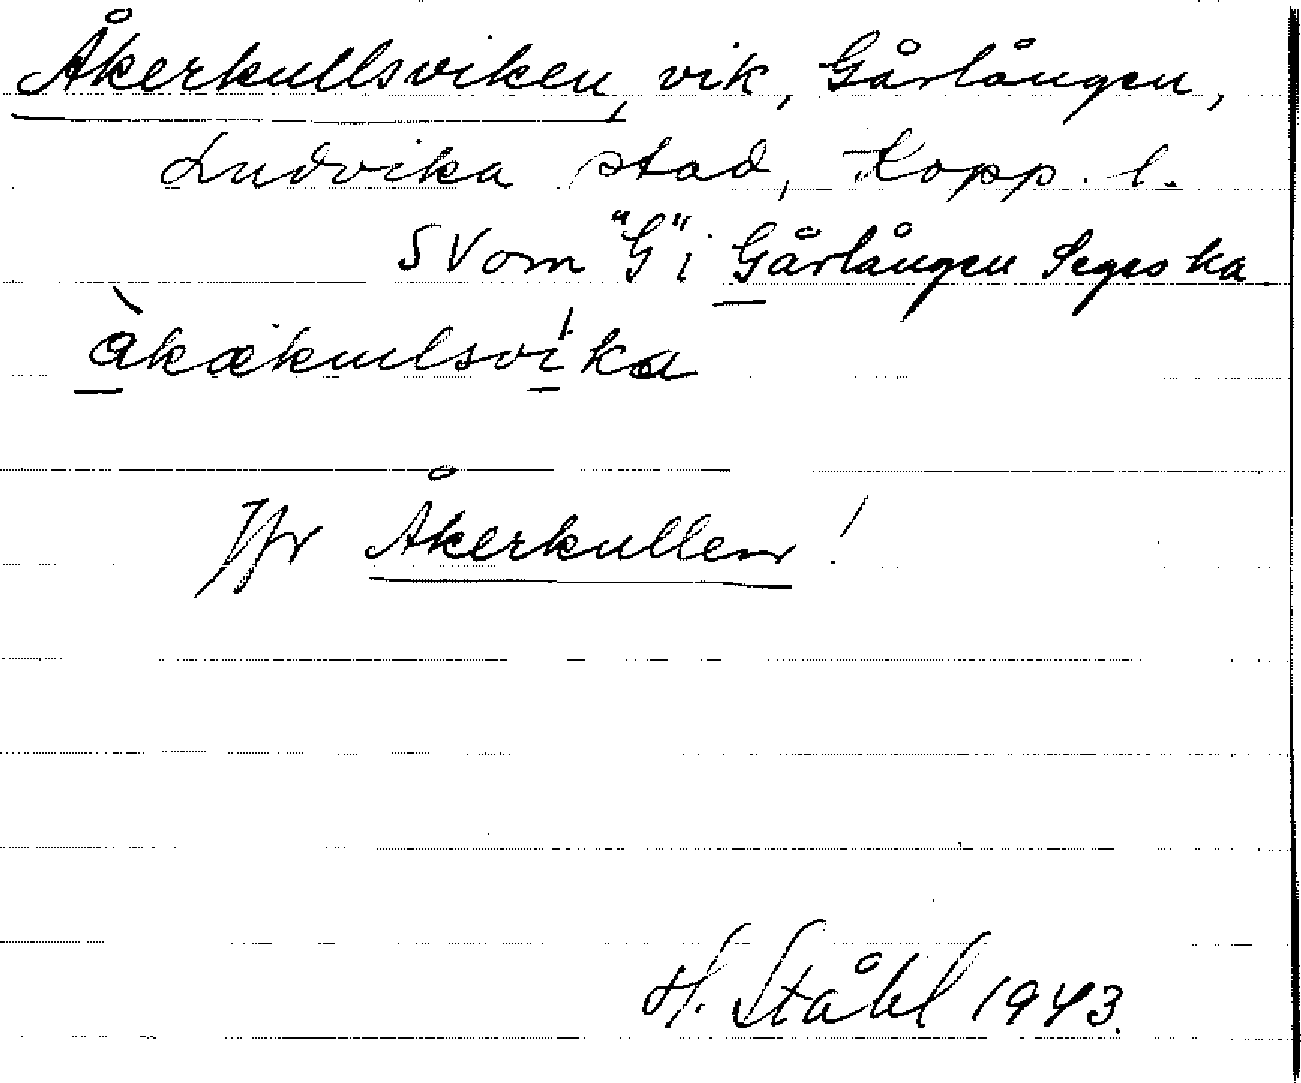 Åkerkullsviken, vik, Gårlången,
Ludvika stad, Kopp. l.
SV om "G" i Gårlången Segeska
àkækulsvíka
Jfr Åkerkullen!
H. Ståhl 1943.